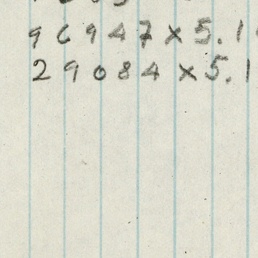 96947×5.1
29084×5.1